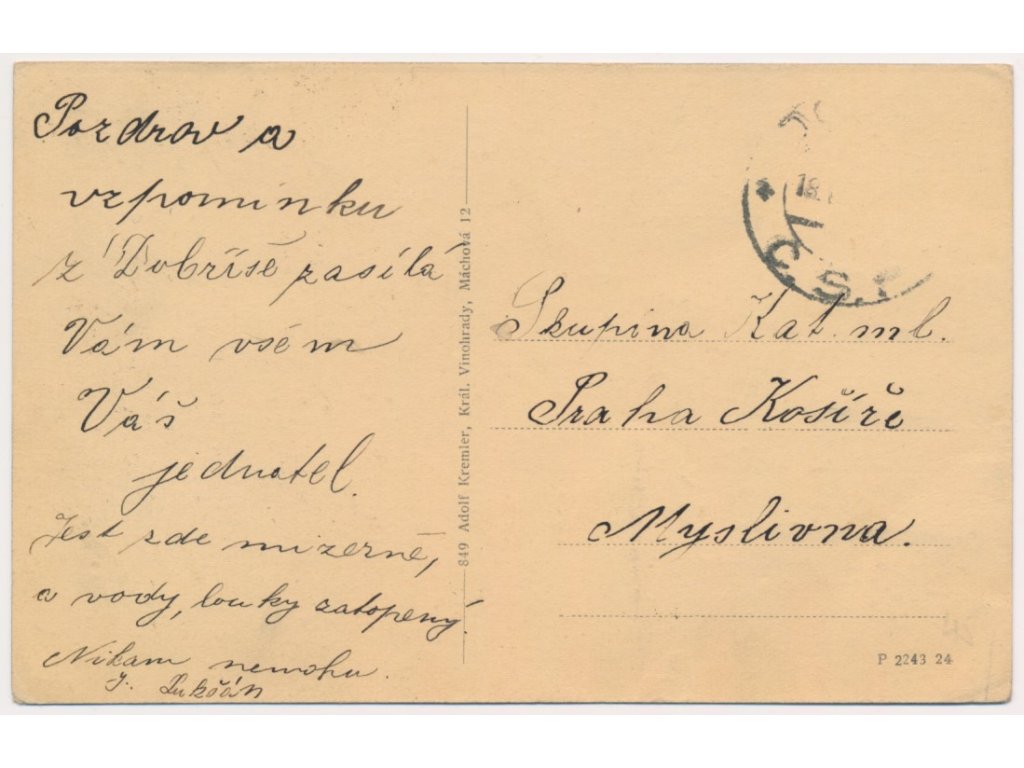 Pozdrav a
vzpomínku
z Dobříše zasílá
Vám všem
Váš
jednatel.
Jest zde mizerně,
a vody, louky zatopený.
Nikam nemohu.
J.
849 Adolf Kremler, Král. Vinohrady, Máchová 12
18.
Č.S.
Skupina Kat. ml.
Praha Košíře
Myslivna.
P 2243 24